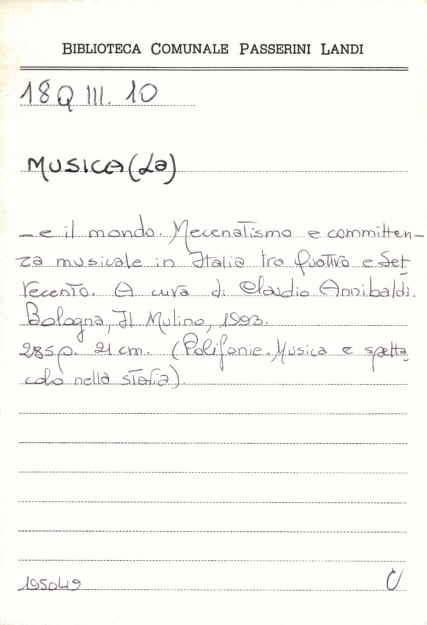 BIBLIOTECA COMUNALE PASSERINI LANDI
18Q III. 10
MUSICA (La)
– e il mondo. Mecenatismo e committen-
za musicale in Italia tra Quattro e Set
tecento. A cura di Claudio Annibaldi.
Bologna, Il Mulino, 1993.
285p. 21 cm. (Polifonie. Musica e spetta
colo nella storia).
195049